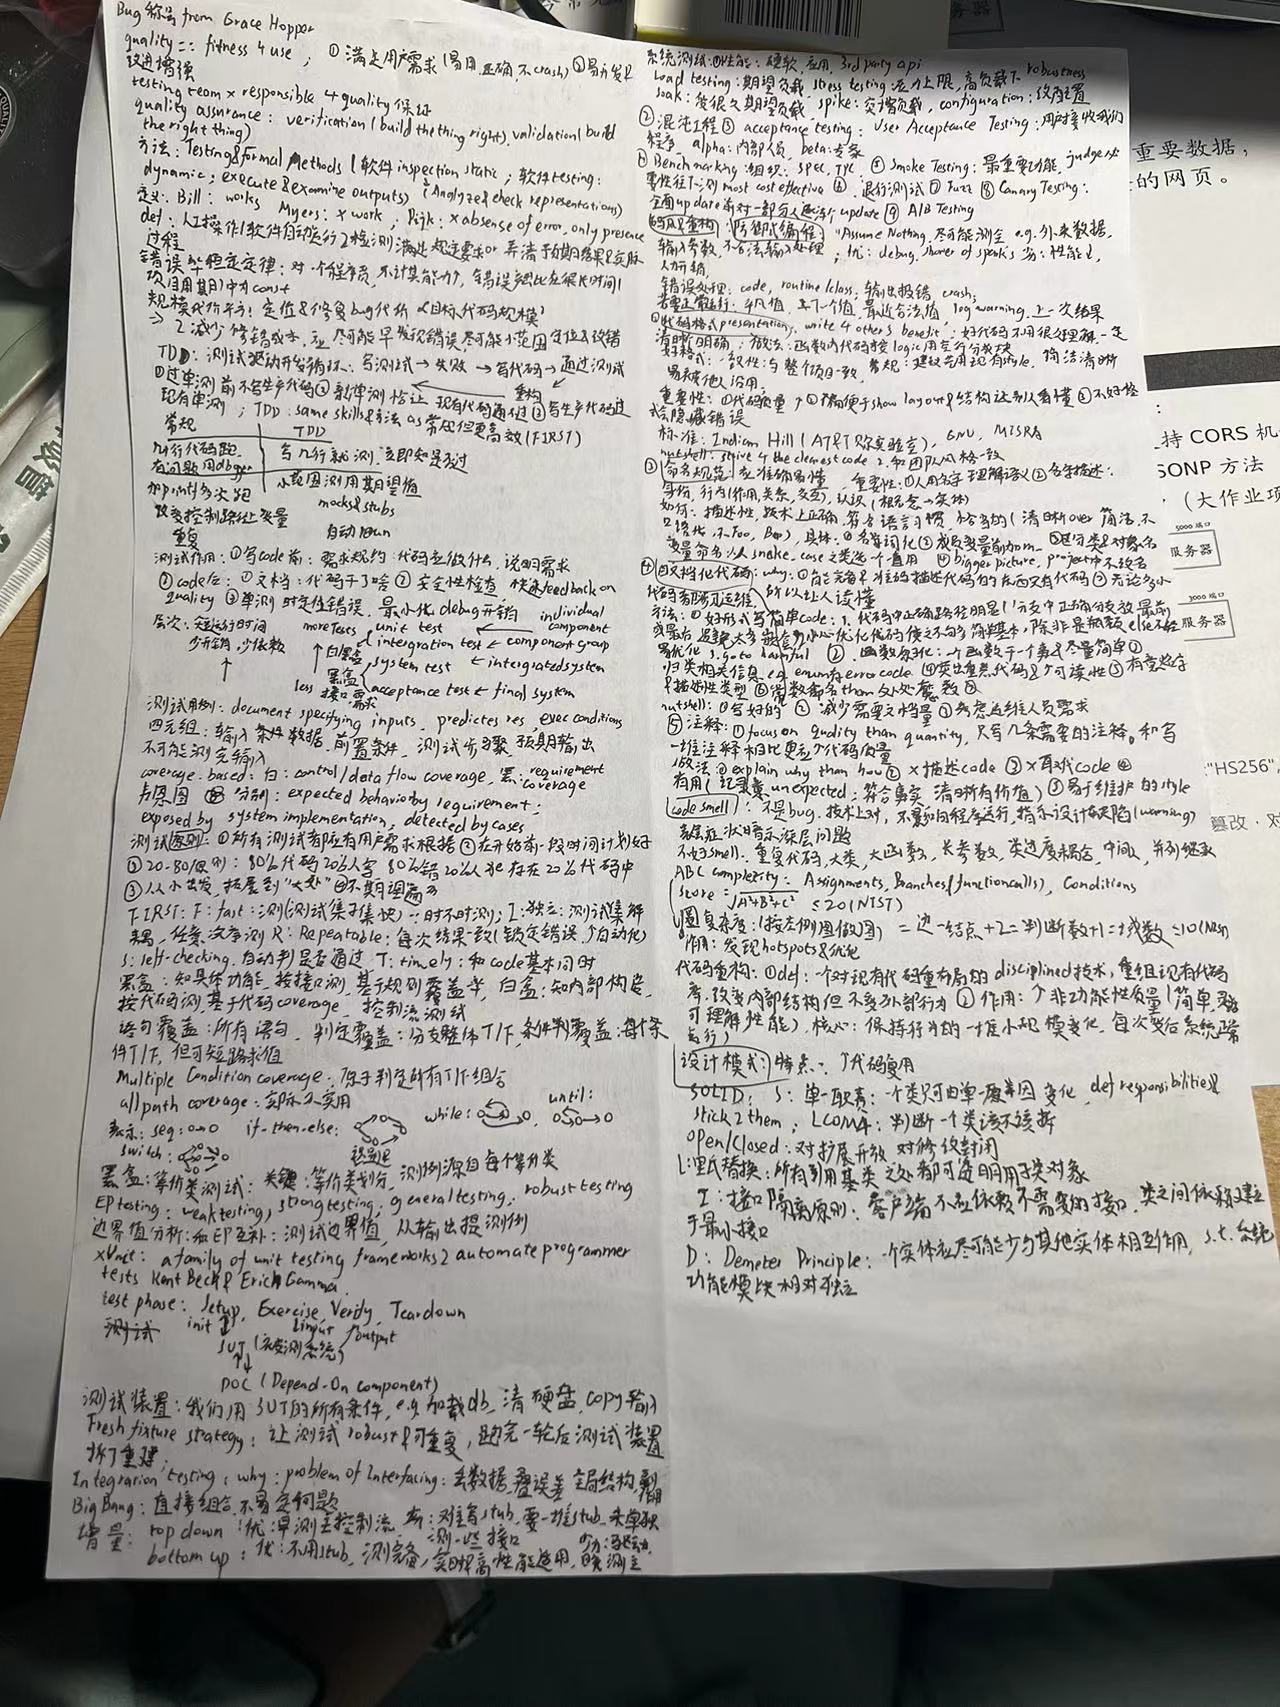 Bug称号 from Grace Hopper
quality == fitness 4 use; ①满足用户需求(易用,正确,不crash)②易开发&
改进增强
testing team × responsible 4 quality保证
quality assurance: verification(build the thing right), validation(build
the right thing)
方法: Testing&formal Methods(软件inspection static; 软件testing:
dynamic; execute&examine outputs) Analyze&check representations)
定义: Bill: works Myers: × work, Dijk: × absence of error, only presence
def: 人工操作/软件自动运行2检测满足规定要求or弄清预期结果&实际
过程
错误率恒定定律: 对一个程序员,不计其能力↑,错误率比在很长时间(
项目周期)中为const
规模代价平方! 定位&修复bug代价∝目标代码规模²
⇒ 2减少修错成本,应尽可能早发现错误,尽可能小范围定位&改错
TDD: 测试驱动开发循环: 写测试→失败→写代码→通过测试
重构
①过单测前不写生产代码②新单测恰让现有代码通不过③写生产代码过
现有单测; TDD: same skills&方法 as 常规但更高效(FIRST)
常规 TDD
几行代码跑, 写几行就测,立即知是否过
有问题用dbger 小范围测用期望值
加print多次跑 mocks&stubs
改变控制路径变量 自动用un
重复
测试作用: ①写code前: 需求规约:代码应做什么,说明需求
②code后: ①文档:代码干了啥②安全性检查, 快速feedback on
quality ③单测时定位错误,最小化debug开销 individual
层次: 短运行时间 more Tests unit test ← component
少开销,少依赖 integration test ← component group
白黑盒 system test ← intergrated system
黑盒 acceptance test ← final system
less 接口需求
测试用例: document specifying inputs, predictes res, exec conditions
四元组: 输入条件数据,前置条件,测试步骤,预期输出
不可能测完输入
coverage-based: 白: control/data flow coverage, 黑: requirement
coverage
分别: expected behavior by requirement;
exposed by system implementation, detected by cases
测试原则: ①所有测试都应有用户需求根据②在开始前一段时间计划好
③20-80原则: 80%代码20%人写 80%错20%人 存在20%代码中
③从小出发,拓展到"大处"④不期望遍历
FIRST: F: fast: 测(测试集子集快)∵时不时测; I: 独立: 测试集解
耦,任意次序测 R: Repeatable: 每次结果一致(锁定错误,↑自动化)
S: self-checking, 自动判是否通过 T: timely: 和code基本同时
黑盒: 知具体功能,按接口测,基于规则覆盖率, 白盒: 知内部构造,
按代码测,基于代码coverage, 控制流测试
语句覆盖: 所有语句, 判定覆盖: 分支整体T/F, 条件判覆盖: 每个条
件T/F, 但可短路求值
Multiple Condition coverage: 原子判定所有T/F组合
all path coverage: 实际不实用
表示: seq: o→o if-then-else: while: until:
switch:
黑盒: 等价类测试: 关键: 等价类划分, 测例源自每个等价类
EP testing: weak testing, strong testing; general testing, robust testing
边界值分析: 和EP互补: 测试边界值, 从输出提测例
xUnit: a family of unit testing frameworks 2 automate programmer
tests Kent Beck & Erich Gamma
test phase: Setup, Exercise, Verify, Teardown
init input output
SUT (被测系统)
DOC (Depend-On component)
测试装置: 我们用SUT的所有条件, e.g. 加载db, 清硬盘, copy输入
Fresh fixture strategy: 让测试robust&可重复, 跑完一轮后测试装置
拆了重建
Integration testing: why: problem of Interfacing: 丢数据,叠误差 全局结构,
Big Bang: 直接组合,不易定问题
增量: top down: 优: 早测主控制流, 劣: 难写stub,要一堆stub,未单独
测一些接口
bottom up: 优: 不用stub, 测完备, 劣:要驱动,
系统测试: ①性能: 硬软,应用, 3rd party api
Load testing: 期望负载, stress testing: 压力上限,高负载下robustness
soak: 使很久期望负载, spike: 突增负载, configuration: 改配置
②混沌工程③ acceptance testing: User Acceptance Testing: 用户接收我们
程序, alpha:内部人员, beta:专家
④Benchmarking: 组织: SPEC, TPC ⑤ Smoke Testing: 最重要功能, judge必
要性往下测 most cost effective ⑥: 退行测试⑦ Fuzz ⑧ Canary Testing:
全面update前对一部分人 update ⑨ A/B Testing
码风&重构 防御式编程: "Assume Nothing, 尽可能测全 e.g. 外来数据,
输入参数, 不合法输入处理; 优: debug, 劣: 性能↓,
人力开销,
错误处理: code, routine/class; 输出报错, crash;
若要正常运行: 平凡值, 上下个值, 最近合法值, log warning, 上一次结果
①代码格式presentation: write 4 others benefit: 好代码不用很处理解一定
清晰明确; 做法: 函数内代码按logic用空行分成块
好格式: 一致性:与整个项目一致, 常规: 建议若用现有style, 简洁清晰
易被他人沿用,
重要性: ①代码质量↑②精简便于show layout&结构让别人看懂③不好格
式会隐藏错误
标准: Indian Hill (AT&T 贝尔实验室), GNU, MISRA
nutshell: strive 4 the clearest code 2. 和团队风格一致
③命名规范: 应准确易懂, 重要性: ①人用名字理解语义②名字描述:
身份, 行为(作用,关系,交互), 认识(概念→实体)
如何: 描述性, 技术上正确, 符合语言习惯, 恰当的(清晰over简洁, 不
口语化, 不Foo, Bar), 具体: ①名词化②成员变量前加m_ ③区分类&对象名
变量命名: 从snake_case之类选一个直用 ④bigger picture, project中不改名
④自文档化代码: why: ①能完备&准确描述代码的东西只有代码②无论多小
代码都易可运维, 所以让人读懂
方法: ①好形式写简单code: 1. 代码中正确路径明显(分支中正确分支放最前
或最后 避免太多嵌套
易优化 3. goto harmful ②: 函数原子化: 一个函数干一个事&尽量简单③
归类相关信息, e.g. enum好error code ④突出重点代码&↑可读性⑤有意义名字
&描述性类型⑥常数都名them
nutshell: ①写好的 ② 减少需要文档量③考虑运维人员需求
⑤注释: ①focus on quality than quantity, 只写几条需要的注释。和写
一堆注释相比更应↑代码质量
做法: ① explain why than how ② ×描述code ③×取代code ④
有用(记录意unexpected: 符合事实 清晰所有价值) ⑤易于维护的style
code smell: 不是bug, 技术上对, 不影响程序运行, 指示设计缺陷(warning)
表层症状暗示深层问题
不好smell: 重复代码, 大类, 大函数, 长参数, 类过度耦合, 中间人, 并列继承
ABC complexity: Assignments, Branches(function calls), Conditions
Store = √A²+B²+C² ≤ 20 (NIST)
圈复杂度: (按左侧图做图) = 边-结点+2 = 判断数+1 = 域数 ≤10 (NIST)
作用: 发现hotspots&优化
代码重构: ①def: 一个对现有代码重布局的disciplined技术, 重组现有代码
库, 改变内部结构但不变外部行为 ② 作用: ↑非功能性质量(简单,灵活
可理解性能), 核心: 保持行为的一堆小规模变化, 每次变后系统正常
运行)
设计模式: 特点: ↑代码复用
SOLID: S: 单一职责: 一个类只可由单一原因变化, def responsibilities&
stick 2 them; LCOM4: 判断一个类该不该拆
open/closed: 对扩展开放 对修改封闭
L: 里氏替换: 所有引用基类之处都可透明用子类对象
I: 接口隔离原则: 客户端不应依赖不需要的接口, 类之间依赖建立
于最小接口
D: Demeter Principle: 一个实体应尽可能少与其他实体相互作用, s.t. 系统
功能模块相对独立
务器
重要数据,
的网页。
持 CORS 机
SONP 方法
(大作业项
5000 端口
服务器
3000 端口
服务器
:"HS256",
篡改·对